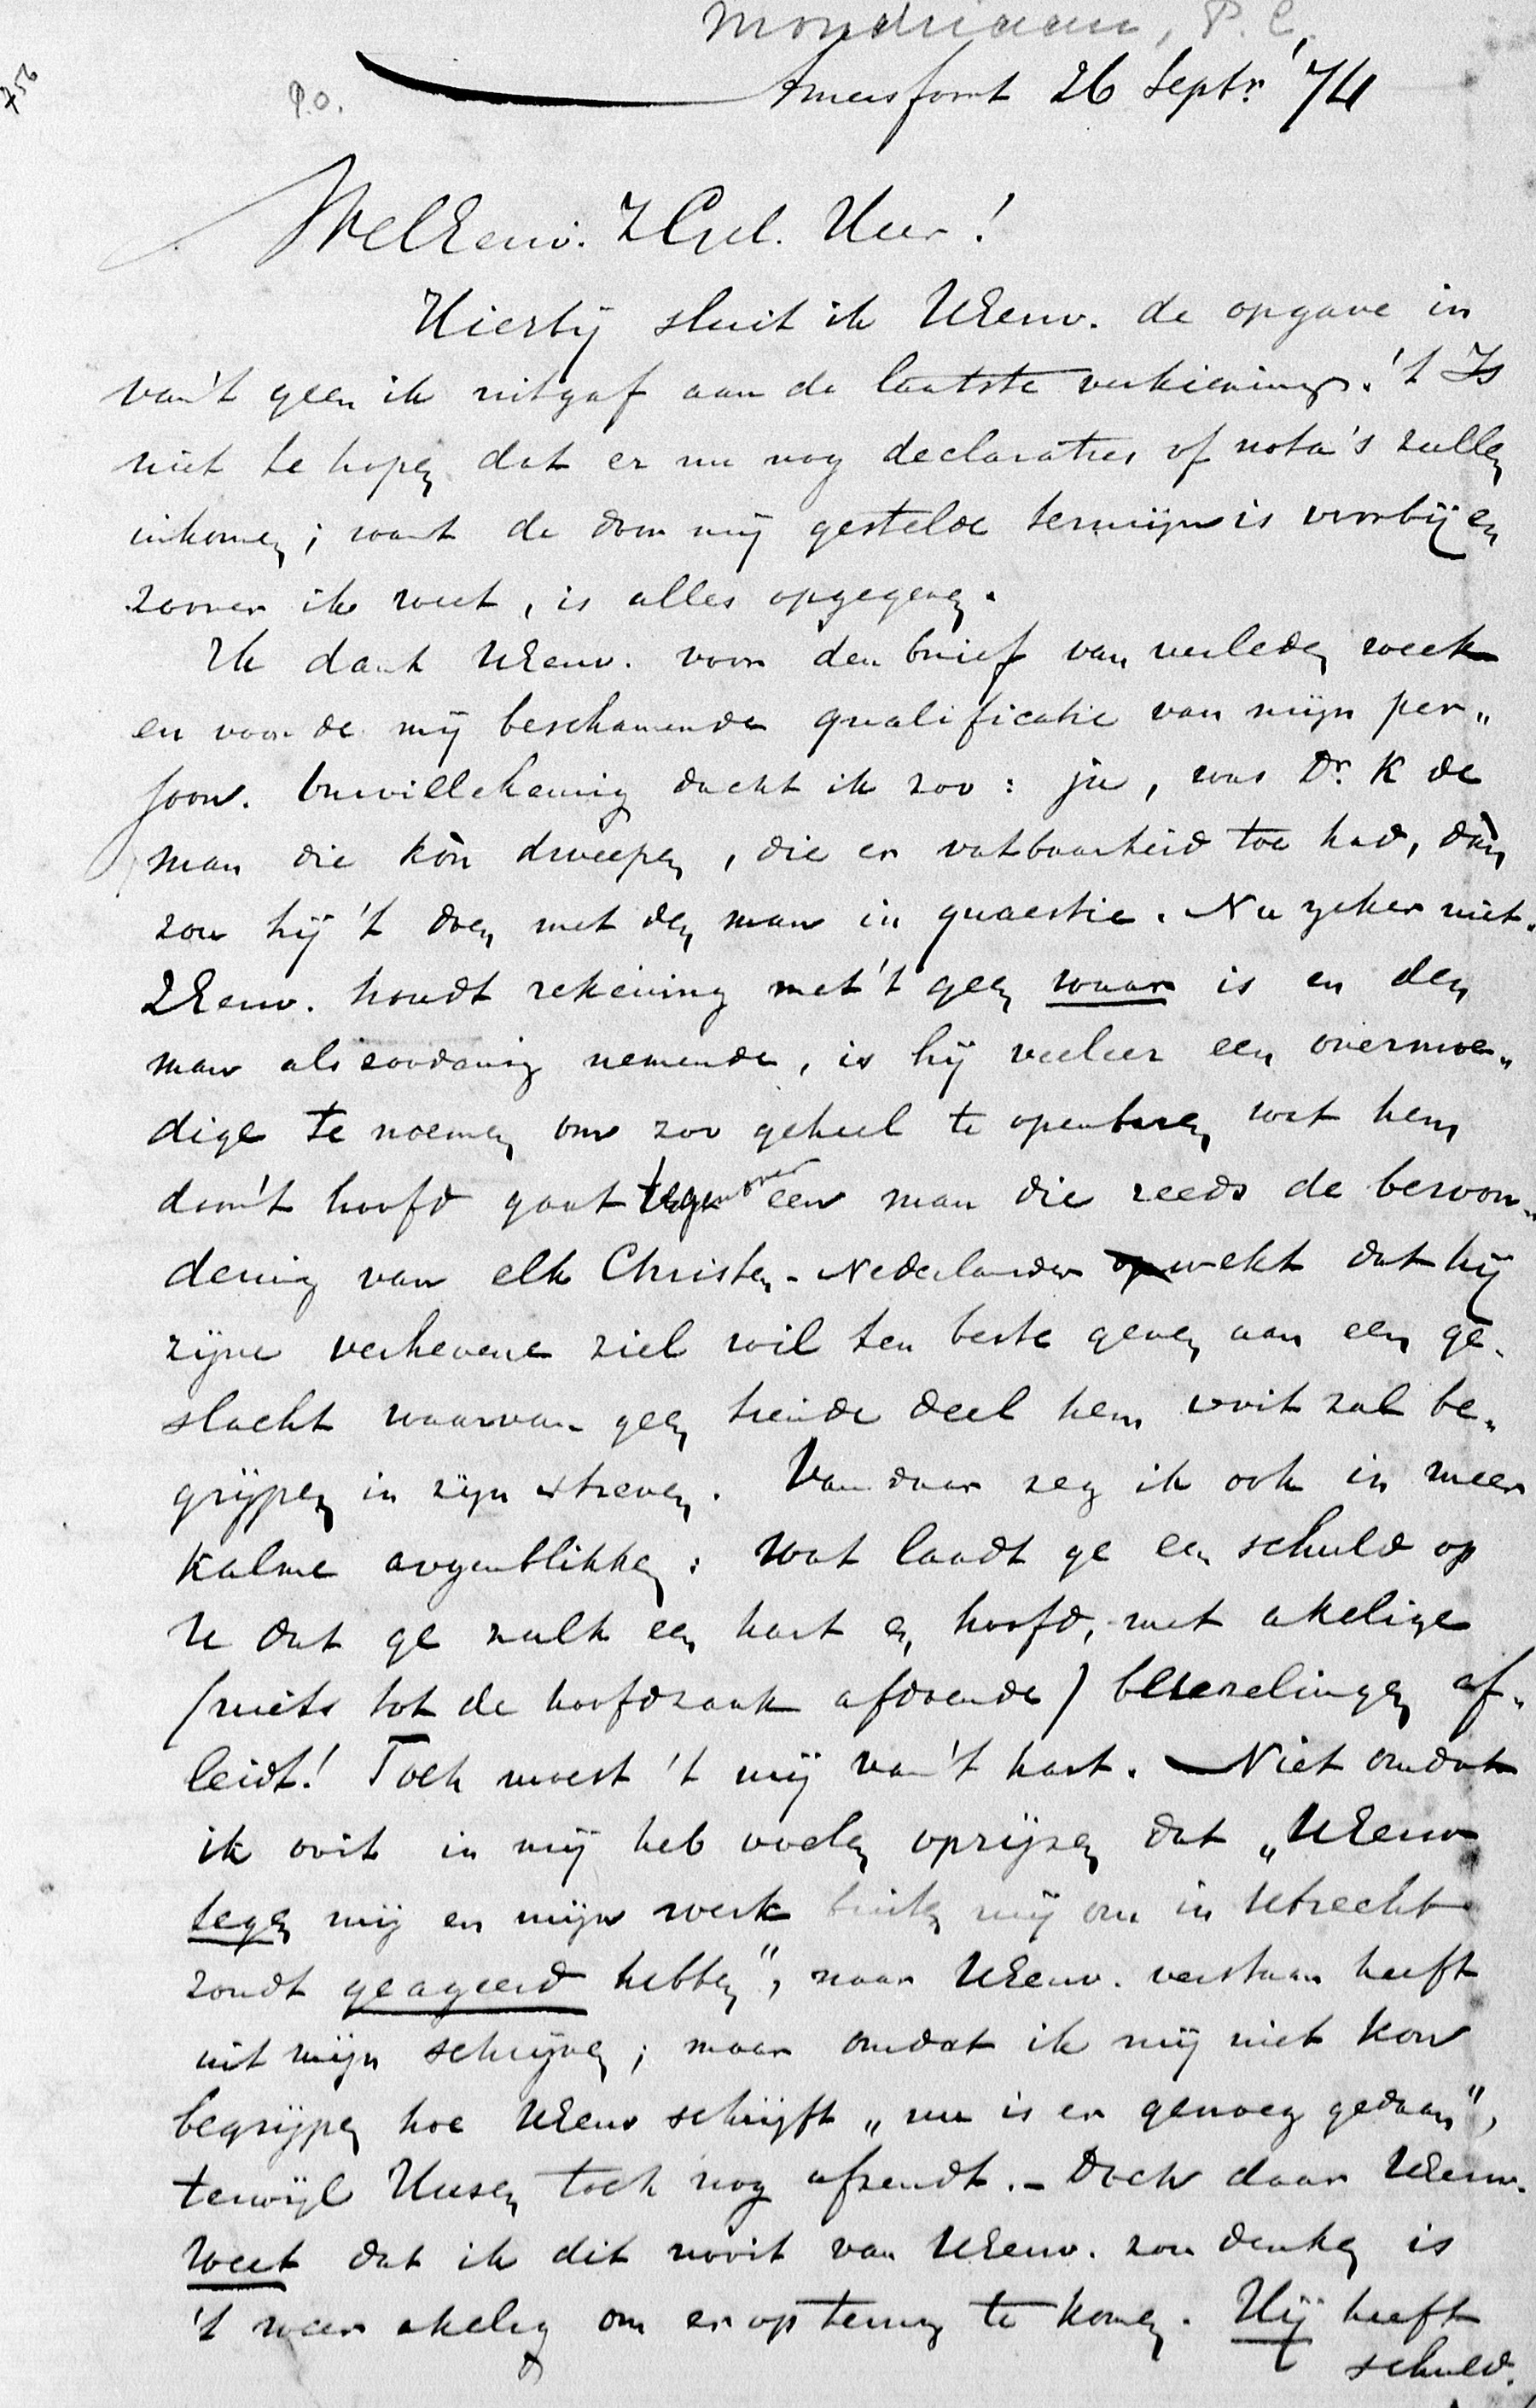 Mondriaan, P. C.
756
P.O.
Amersfoort 26 Septr. '74
WelEerw. ZGel. Heer!
Hierbij sluit ik UEerw. de opgave in
van 't geen ik uitgaf aan de laatste verkiezing. 't Is
niet te hopen dat er nu nog declaraties of nota's zullen
inkomen; want de door mij gestelde termijn is voorbij en
zoover ik weet, is alles opgegeven.
Ik dank UEerw. voor den brief van verleden week
en voor de mij beschamende qualificatie van mijn per„
soon. Onwillekeurig dacht ik zoo: ja, was Dr. K de
man die kòn dweepen, die er vatbaarheid toe had, dàn
zou hij 't doen met den man in quaestie. Nu zeker niet.
UEerw. houdt rekening met 't geen waar is en den
man als zoodanig nemende, is hij veeleer een overmoe„
dige te noemen om zoo geheel te openbaren wat hem
door 't hoofd gaat tegenover een man die reeds de bewon„
dering van elk Christen-Nederlander wekt dat hij
zijne verhevene ziel wil ten beste geven aan een ge„
slacht waarvan geen tiende deel hem ooit zal be„
grijpen in zijn streven. Van daar zeg ik ook in meer
kalme oogenblikken: wat laadt ge een schuld op
U dat ge zulk een hart en hoofd, met akelige
(niets tot de hoofdzaak afdoende) beuzelingen af„
leidt! Toch moest 't mij van 't hart. Niet omdat
ik ooit in mij heb voelen oprijzen dat „UEerw
tegen mij en mijn werk buiten mij om in Utrecht
zoudt geageerd hebben", naar UEerw. verstaan heeft
uit mijn schrijven; maar omdat ik mij niet kon
begrijpen hoe UEerw schrijft „nu is er genoeg gedaan",
terwijl Huisen toch nog afzendt. – Doch daar UEerw.
weet dat ik dit nooit van UEerw. zou denken is
't weer akelig om er op terug te komen. Hij heeft
schuld.